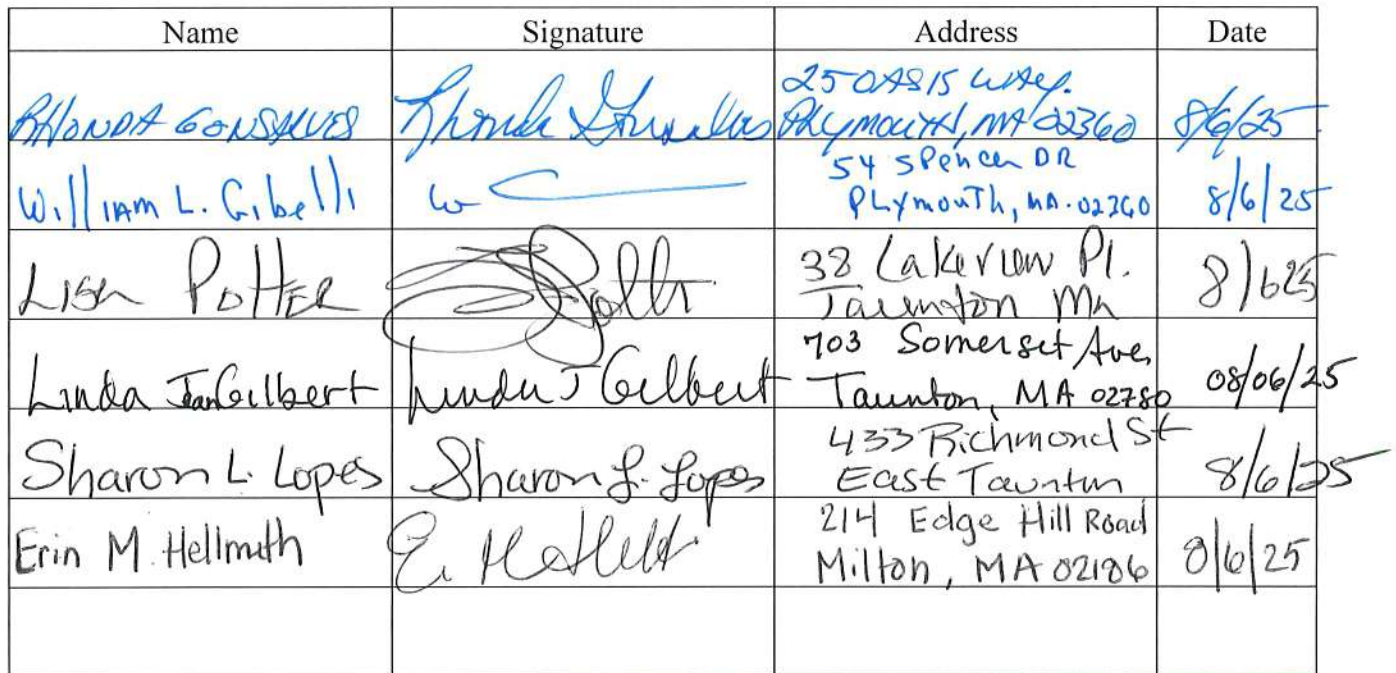 Name Signature Address Date
RHONDA GONSALVES Rhonda Gonsalves 25 OASIS WAY. PLYMOUTH, MA 02360 8/6/25
William L. Gibelli W 54 Spencer DR PLYmouTh, MA. 02360 8/6/25
Lisa Potter Potter 38 Lakeview Pl. Taunton Ma 8/625
Linda Jean Gilbert Linda J Gilbert 703 Somerset Ave, Taunton, MA 02780 08/06/25
Sharon L. Lopes Sharon L. Lopes 433 Richmond St East Taunton 8/6/25
Erin M. Hellmuth E. M. 214 Edge Hill Road Milton, MA 02186 8/6/25